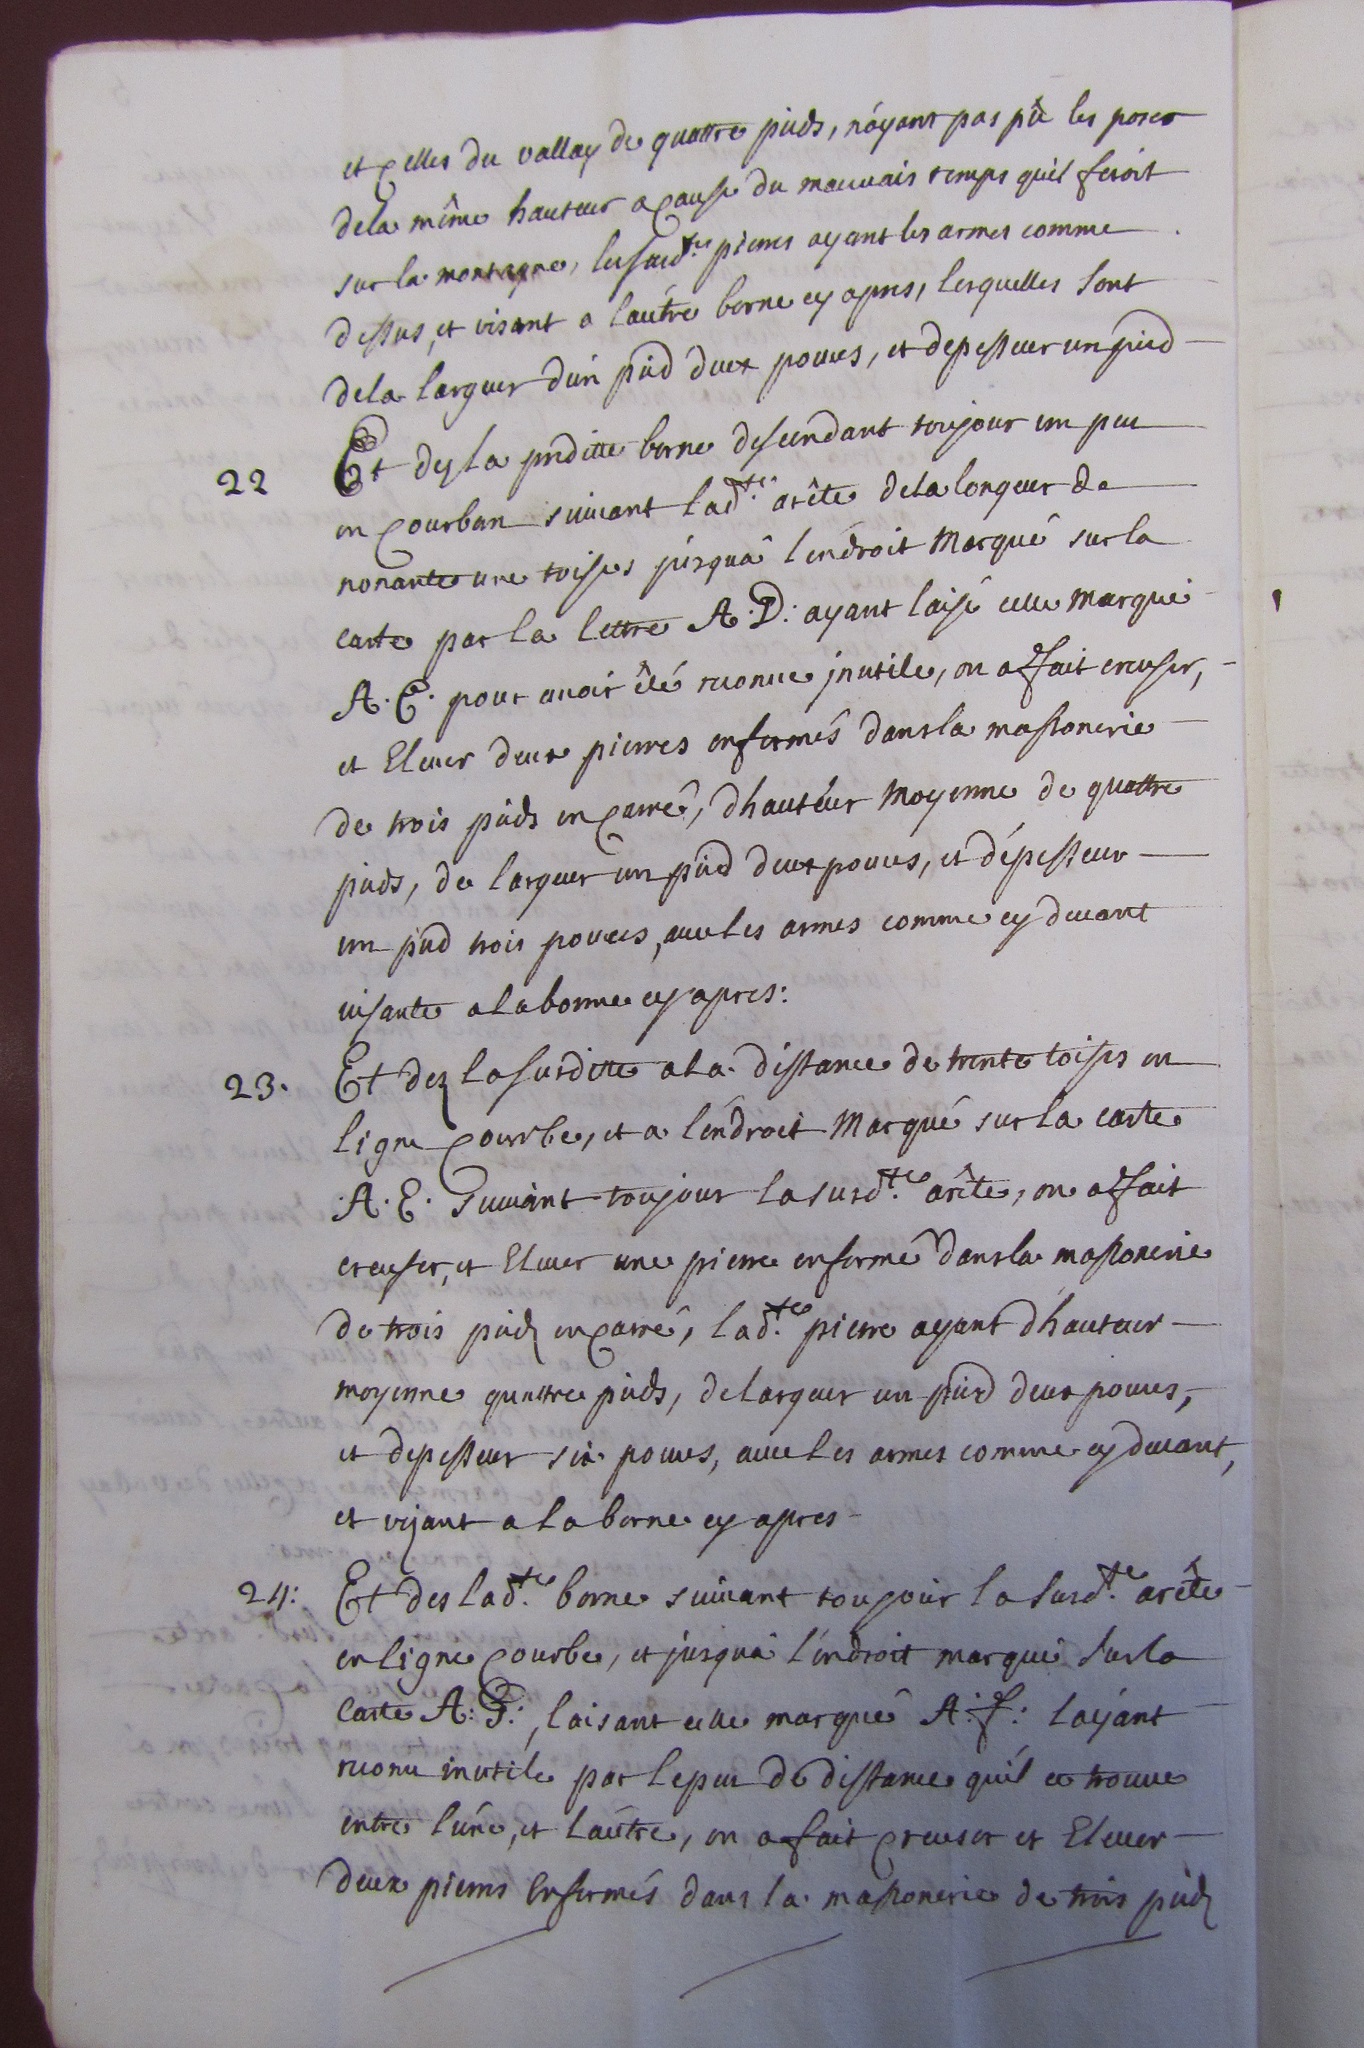 et celles du vallay de quattre pieds, n'áyant pas pû les poser
dela même hauteur a cause du mauvais temps qu'il fesoit
sur la montagne, les susd.tes pierres ayant les armes comme
dessus, et visant a l'aútre borne cy apres, lesquelles sont
dela largeur d'ún pied deux pouces, et depesseur un pied
22 Et des la preditte borne descendant toujour un peu
en courban suivant lad.te arête dela longeur de
nonante une toises júsquâ l'endroit Marqué sur la
carte par la lettre A. D: ayant laisé celle marqué
A. C. pour avoir êté reconue jnutile, on a fait creuser,
et Elever deux pierres enfermés dans la massonerie
de trois pieds en carré, d'hautéur Moyenne de quattre
pieds, de largeur un pied deux pouces, et d'épesseur
un pied trois pouces, avec les armes comme cy devant
visante a la borne cy apres:
23. Et dez la surditte a la distance de trente toises en
ligne courbe, et a l'éndroit Marqué sur la carte
A. E. suivant toujour la surd.te arête, on a fait
creuser, et Elever une pierre enfermé dans la massonerie
de trois pieds en carré, lad.te pierre ayant d'hauteur
moyenne quattre pieds, de largeur un pied deux pouces,
et depesseur six pouces, avec les armes comme cy devant,
et vizant a la borne cy apres
24: Et des lad.te borne suivant toujour la surd.te arête
en ligne courbe, et jusquâ l'éndroit marqué sur la
carte A: G:, laisant celle marqué A: f: layánt
reconu inutile par le peu de distance qu'il ce trouve
entre l'úne, et l'aútre, on a fait creuser et Elever
deux pierres Enfermés dans la massonerie de trois pieds